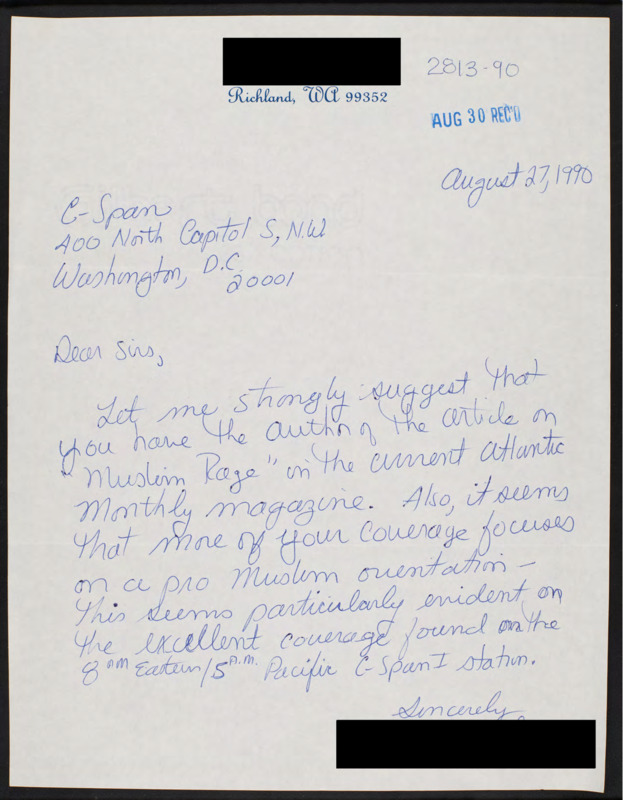 2813-90
Richland, WA 99352
AUG 30 REC'D
August 27, 1990
C-Span
400 North Capitol S, N.W
Washington, D.C.
20001
Dear Sirs,
Let me strongly suggest that
you have the author of the article on
"Muslim Rage" in the current Atlantic
Monthly magazine. Also, it seems
that more of your coverage focuses
on a pro Muslim orientation –
this seems particularly evident on
the excellent coverage found on the
8 AM Eastern/5 A.M. Pacific C-Span I station.
Sincerely,